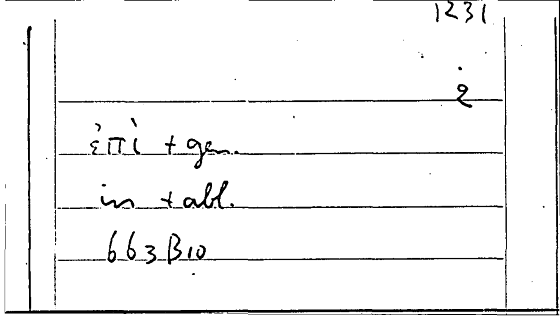 1231
ἐπὶ + gen.
in + abl.
663B10